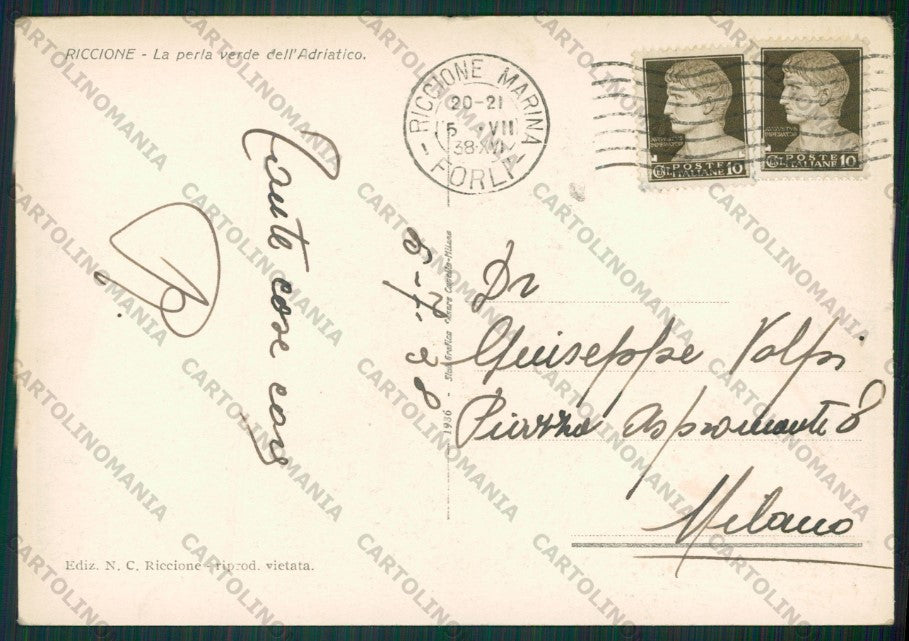 RICCIONE - La perla verde dell'Adriatico.
RICCIONE MARINA
20-21
5 · VII
38·XVI
- FORLI -
POSTE
ITALIANE 10
POSTE
ITALIANE 10
Tante cose care
6-7-38
Dr
Giuseppe Volpi
Piazza Aspromonte 8
Milano
1936 - Stab. Grafico Cesare Capello-Milano
Ediz. N. C. Riccione - riprod. vietata.
CARTOLINOMANIA